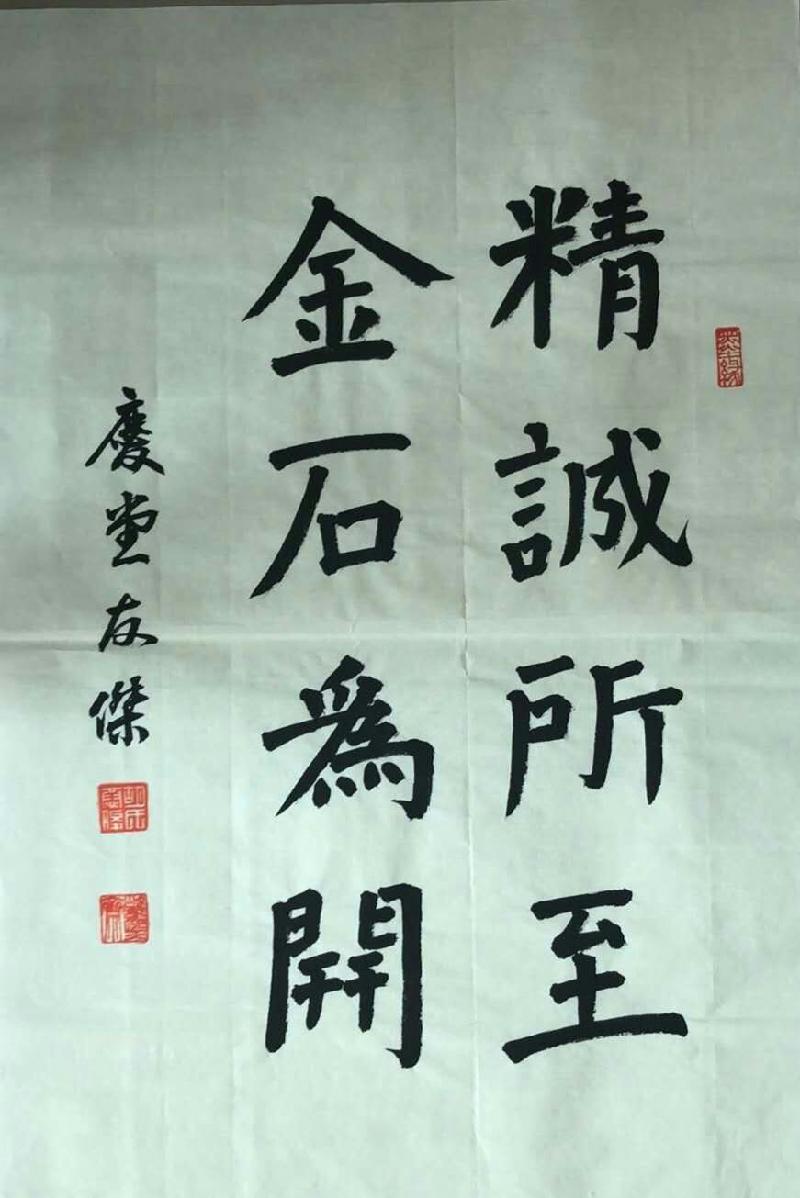 精誠所至
金石為開
慶堂友傑